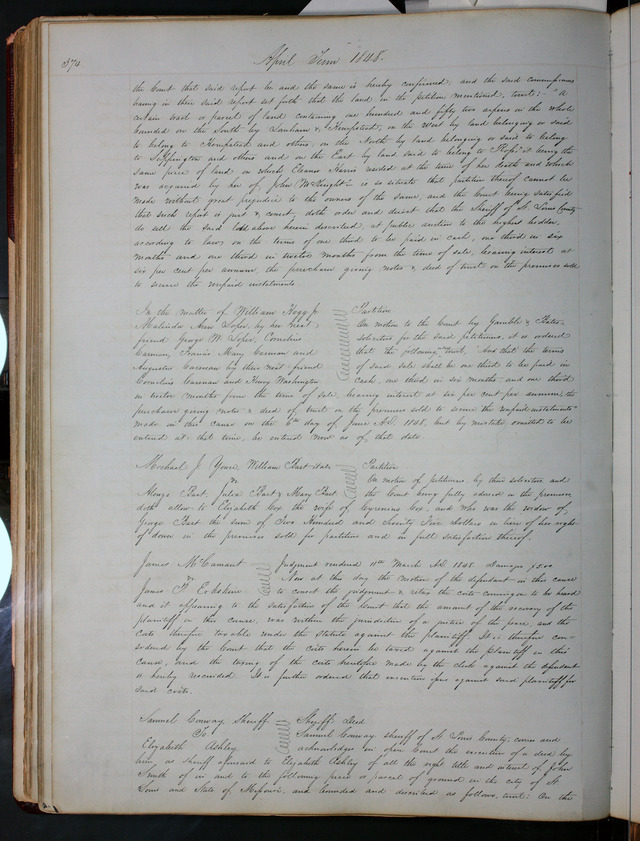 374
April Term 1848.
the Court that said report be and the same is hereby confirmed; and the said commissioners
having in their said report set forth that the land in the petition mentioned, towit:- "A
certain tract or parcel of land containing one hundred and fifty two arpens in the whole
bounded on the South by Lanham & Hempstead, on the West by land belonging or said
to belong to Hempstead and others, on the North by land belonging or said to belong
to Sappington and others and on the East by land said to belong to it being the
same piece of land on which Eleanor Harris resided at the time of her death and which
was acquired by her of John McKnight" is so situate that partition thereof cannot be
made without great prejudice to the owners of the same, and the Court being satisfied
that such report is just & correct, doth order and direct that the Sheriff of St. Louis County
do sell the said above herein described, at public auction to the highest bidder,
according to law, on the terms of one third to be paid in cash, one third in six
months and one third in twelve months from the time of sale, bearing interest at
six per cent per annum, the purchaser giving notes & deed of trust on the premises sold
to secure the unpaid instalments.
In the matter of William Hogg Jr
Malinda Ann Loper, by her next
friend George W. Loper, Cornelius
Carman, Francis Mary Carman and
Augustus Carman by their next friend
Cornelius Carman and Henry Washington
Partition
On motion to the Court by Gamble & Bates
solicitors for the said petitioners, it is ordered
that the following towit, "And that the terms
of said sale shall be one third to be paid in
cash, one third in six months and one third
in twelve months from the time of sale, bearing interest at six per cent per annum, the
purchaser giving notes & deed of trust on the premises sold to secure the unpaid instalments"
made in this cause on the 6th day of June A.D. 1848, but by mistake omitted to be
entered at that time, be entered now as of that date.
Michael J. William Bart
vs
Alonzo Bart, Julia Bart & Mary Bart
Partition
On motion of petitioners by their solicitors and
the Court being fully advised in the premises
doth allow to Elizabeth Coy the wife of Cyrenius Coy, and who was the widow of
George Bart the sum of Two Hundred and Seventy Five Dollars in lieu of her right
of dower in the premises sold for partition and in full satisfaction thereof.
James McCamant
vs
James F. Erskine
Judgment rendered 11th March A.D. 1848. Damages $500
Now at this day the motion of the defendant in this cause
to correct the judgment & retax the costs coming on to be heard
and it appearing to the satisfaction of the Court that the amount of the recovery of the
plaintiff in this cause, was within the jurisdiction of a justice of the peace, and the
costs therefore taxable under the statute against the plaintiff. It is therefore con-
sidered by the Court that the costs herein be taxed against the plaintiff in this
cause, and the taxing of the costs heretofore made by the clerk against the defendant
is hereby rescinded. It is further ordered that execution issue against said plaintiff for
said costs.
Samuel Conway Sheriff
To
Elizabeth Ashley
Sheriff's Deed
Samuel Conway sheriff of St Louis County, comes and
acknowledges in open Court the execution of a deed by
him as Sheriff aforesaid to Elizabeth Ashley of all the right title and interest of John
Smith of in and to the following piece or parcel of ground in the city of St.
Louis and State of Missouri, and bounded and described as follows, towit: On the